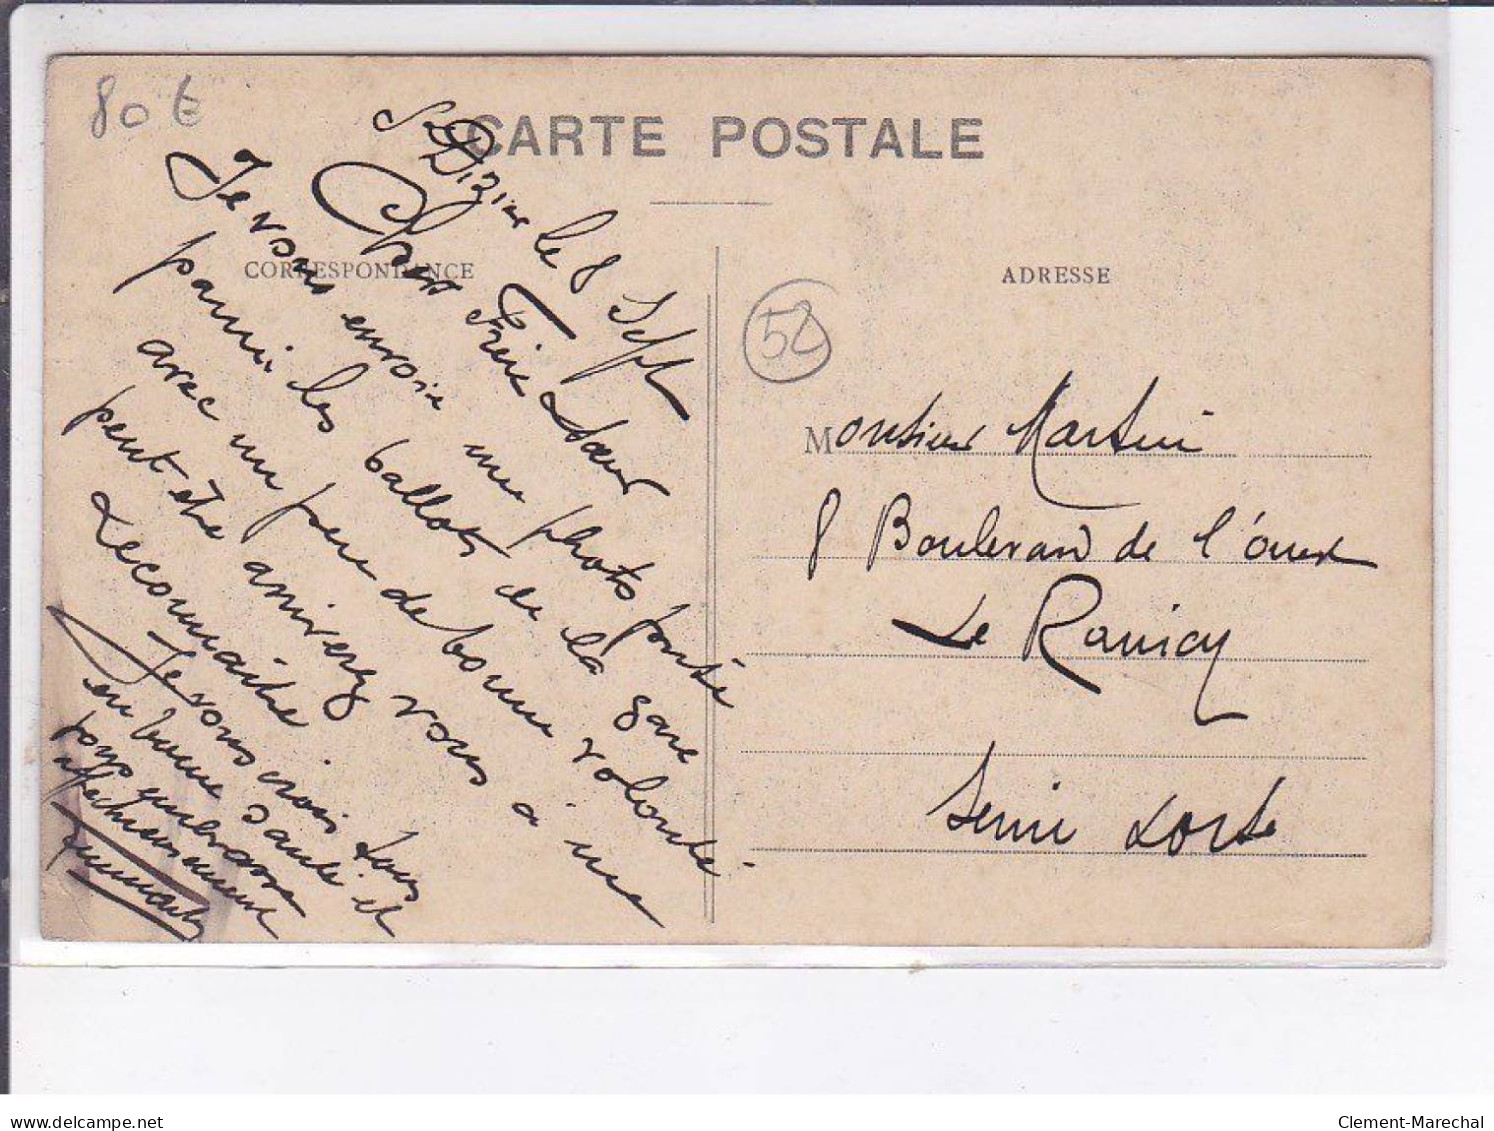 80 €
CARTE POSTALE
CORRESPONDANCE
ADRESSE
52
St Dizier le 8 Sept
Chers Frère & Sœur
Je vous envoie une photo
parmi les ballots de la gare
avec un peu de bonne volonté
peut être arriverez vous à me
reconnaitre
Je vous crois tous
en bonne santé et
vous embrasse
affectueusement
Monsieur Martin
8 Boulevard de l'ouest
Le Raincy
Seine &
delcampe.net
Clement-Marechal